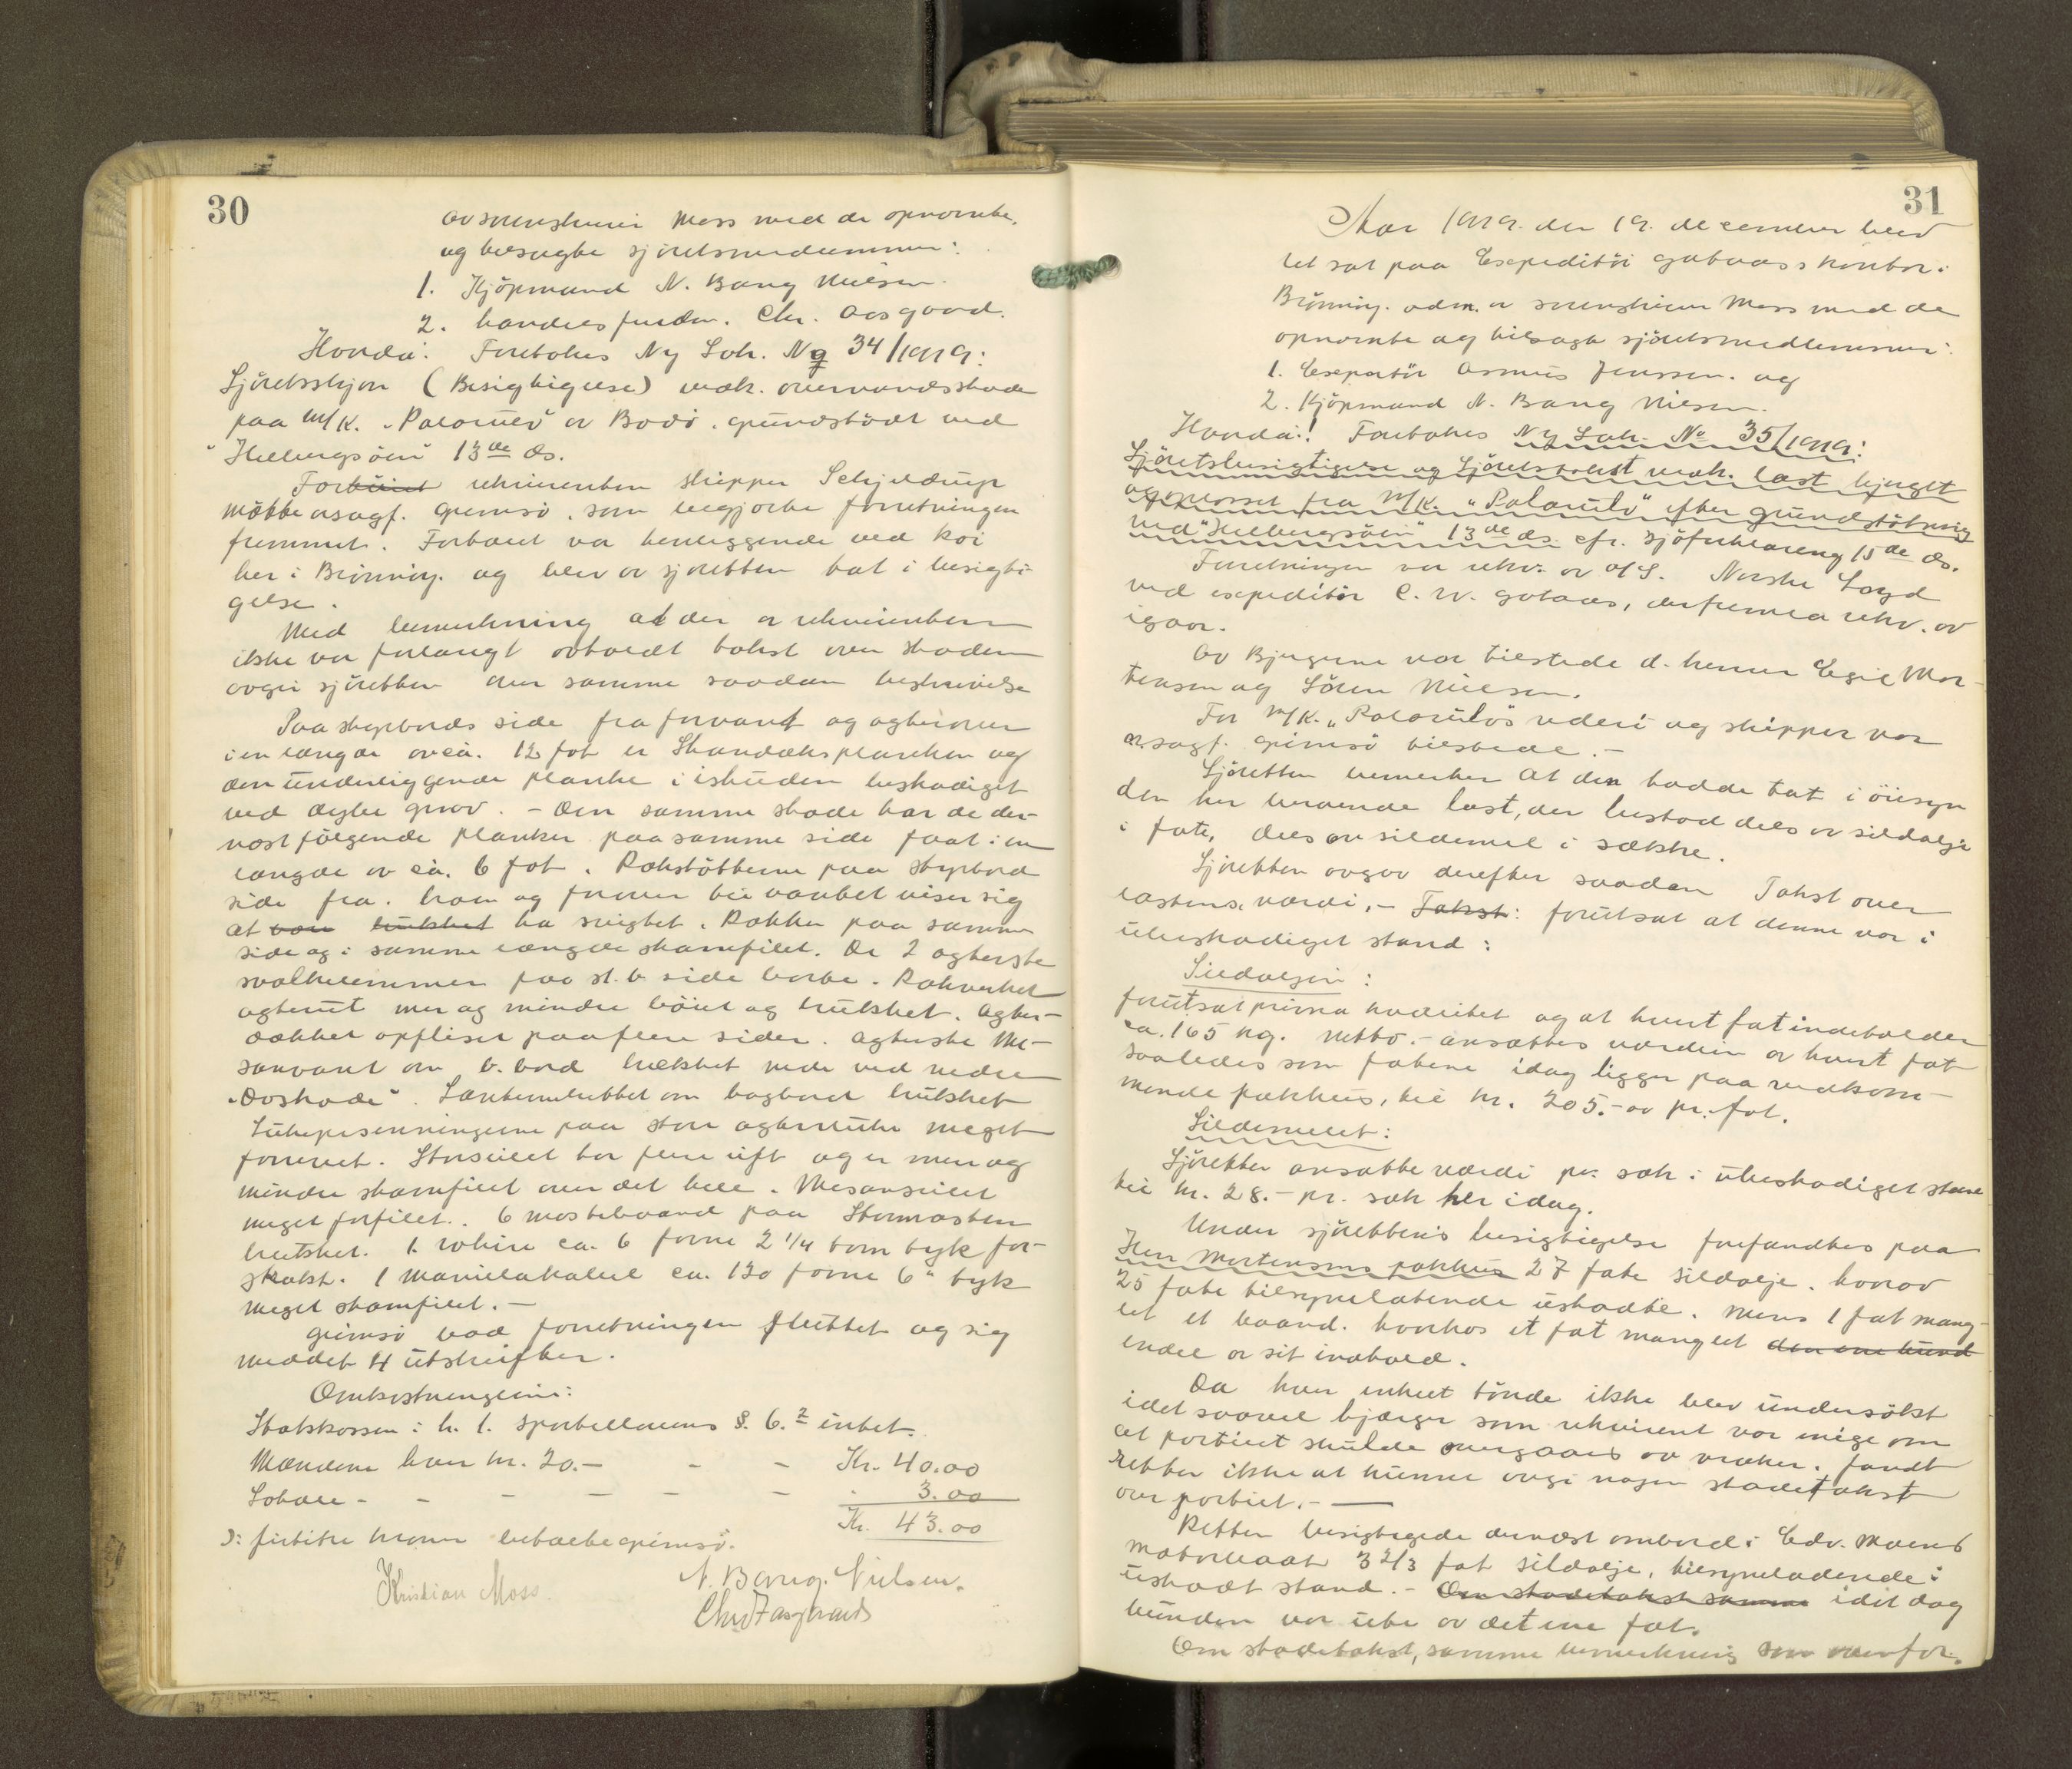 30
av sorenskriver Moss med de opnævnte
og tilsagte sjöretsmedlemmer:
1. Kjöpmand N. Bang Nielsen.
2. handelsfuldm. Chr. Aasgaard.
Hvorda: Foretokes Ny Sak. No 34/1919:
Sjöretsskjön (Besigtigelse) vedk. overvandsskade
paa M/K. "Polarulv" av Bodö. grundstödt ved
"Hellbergsöin" 13de ds.
Fartöiet rekvirenten skipper Schjeldrup
mötte ved sagf. Grimsö, som begjærte forretningen
fremmet. Fartöiet var henliggende ved kai
her i Brönnöy. og blev av sjöretten tat i besigti-
gelse.
Med bemerkning at der av rekvirenten
ikke var forlangt avholdt takst over skaden
avgir sjöretten over samme saadan beskrivelse
Paa styrbords side fra forvant og agterover
i en længde av ca. 12 fot er Skandæksplanken og
den underliggende planke i ishuden beskadiget
ved dype gnav. - Den samme skade har de der-
næst fölgende planker paa samme side faat i en
længde av ca. 6 fot. Rækstötterne paa styrbord
side fra og forover til vantet viser sig
at være brukket ha svigtet. Rækken paa samme
side og i samme længde skamfilet. De 2 agterste
svalkelemmer paa st.b. side borte. Rækverket
agterut mer og mindre böiet og brukket. Agter-
dækket opfliset paa flere sider. Agterste Me-
sanvant om b.bord brækket nede ved nedre
"Doshode". Lanternebrettet om bagbord brukket
Lukepresenningerne paa store agterluke meget
forrevet. Storseilet har flere rift og er mer og
mindre skamfilet over det hele. Mesanseilet
meget forfilet. 6 mastebaand paa Stormasten
brukket. 1 wire ca. 6 favne 2 1/4 tom tyk for-
st. 1 Manilakabel ca. 120 favne 6" tyk
meget skamfilet. -
Grimsö bad forretningen sluttet og sig
meddelt 4 utskrifter.
Omkostningerne:
Statskassen: h. t. sportellovens §. 6.2 intet.
Mændene hver kr. 20.- - - Kr. 40.00
Lokale - - - - - - 3.00
Kr. 43.00
ɔ: firtitre kroner betalte Grimsö.
Kristian Moss. N. Bang. Nielsen.
Chr. Aasgaard
31
Aar 1919. den 19. december blev
ret sat paa Expeditör Gotaas's kontor i
Brönnöy. adm. av sorenskriver Moss med de
opnævnte og tilsagte sjöretsmedlemmer:
1. Exportör Asmus Jenssen. og
2. Kjöpmand N. Bang Nielsen.
Hvorda:! Foretokes Ny Sak. No 35/1919:
Sjöretsbesigtigelse og Sjöretstakst vedk. last bjerget
og losset fra M/K. "Polarulv" efter grundstötning
ved "Hellbergsöin" 13de ds. cfr. sjöforklaring 15de ds.
Forretningen var rekv. av A/S. Norske Loyd
ved expeditör C. W. Gotaas, derfremla rekv. av
igaar.
Av Bjergerne var tilstede d. herrer Egil Mor-
tensen og Sören Nielsen.
For M/K. "Polarulvs" rederi og skipper var
o.r.sagf. Grimsö tilstede. -
Sjöretten bemerker at den hadde tat i öiesyn
den her beroende last, der bestod dels av sildolje
i fate, dels av sildemel i sække.
Sjöretten avgav derefter saadan Takst over
lastens værdi, - Takst: forutsat at denne var i
ubeskadiget stand:
Sildoljen:
forutsat prima kvalitet og at hvert fat indeholder
ca. 165 kg. netto. - ansættes værdien av hvert fat
saaledes som fatene idag ligger paa vedkom-
mende pakhus, til kr. 205.- av pr. fat.
Sildemelet:
Sjöretten ansatte værdi pr. sæk i ubeskadiget stand
til kr. 28.- pr. sæk her idag.
Under sjörettens besigtigelse forefandtes paa
Herr Mortensens pakhus 27 fate sildolje. hvorav
25 fate tilsynelatende uskadte. Mens 1 fat mang-
let et baand. hvorhos et fat manglet den ene bund
endel av sit indhold.
Da hver enkelt tönde ikke blev undersökt
idet saavel bjerger som rekvirent var enige om
at partiet skulde overgaaes av vraker, fandt
retten ikke at kunne avgi nogen skadetakst
over partiet. -
Retten besigtigede dernæst ombord i Edv. Moens
motorbaat 3 2/3 fat sildolje, tilsynelatende i
uskadt stand. - Om skadetakst samme idet dog
bunden var ute av det ene fat.
Om skadetakst, samme bemerkning som ovenfor.